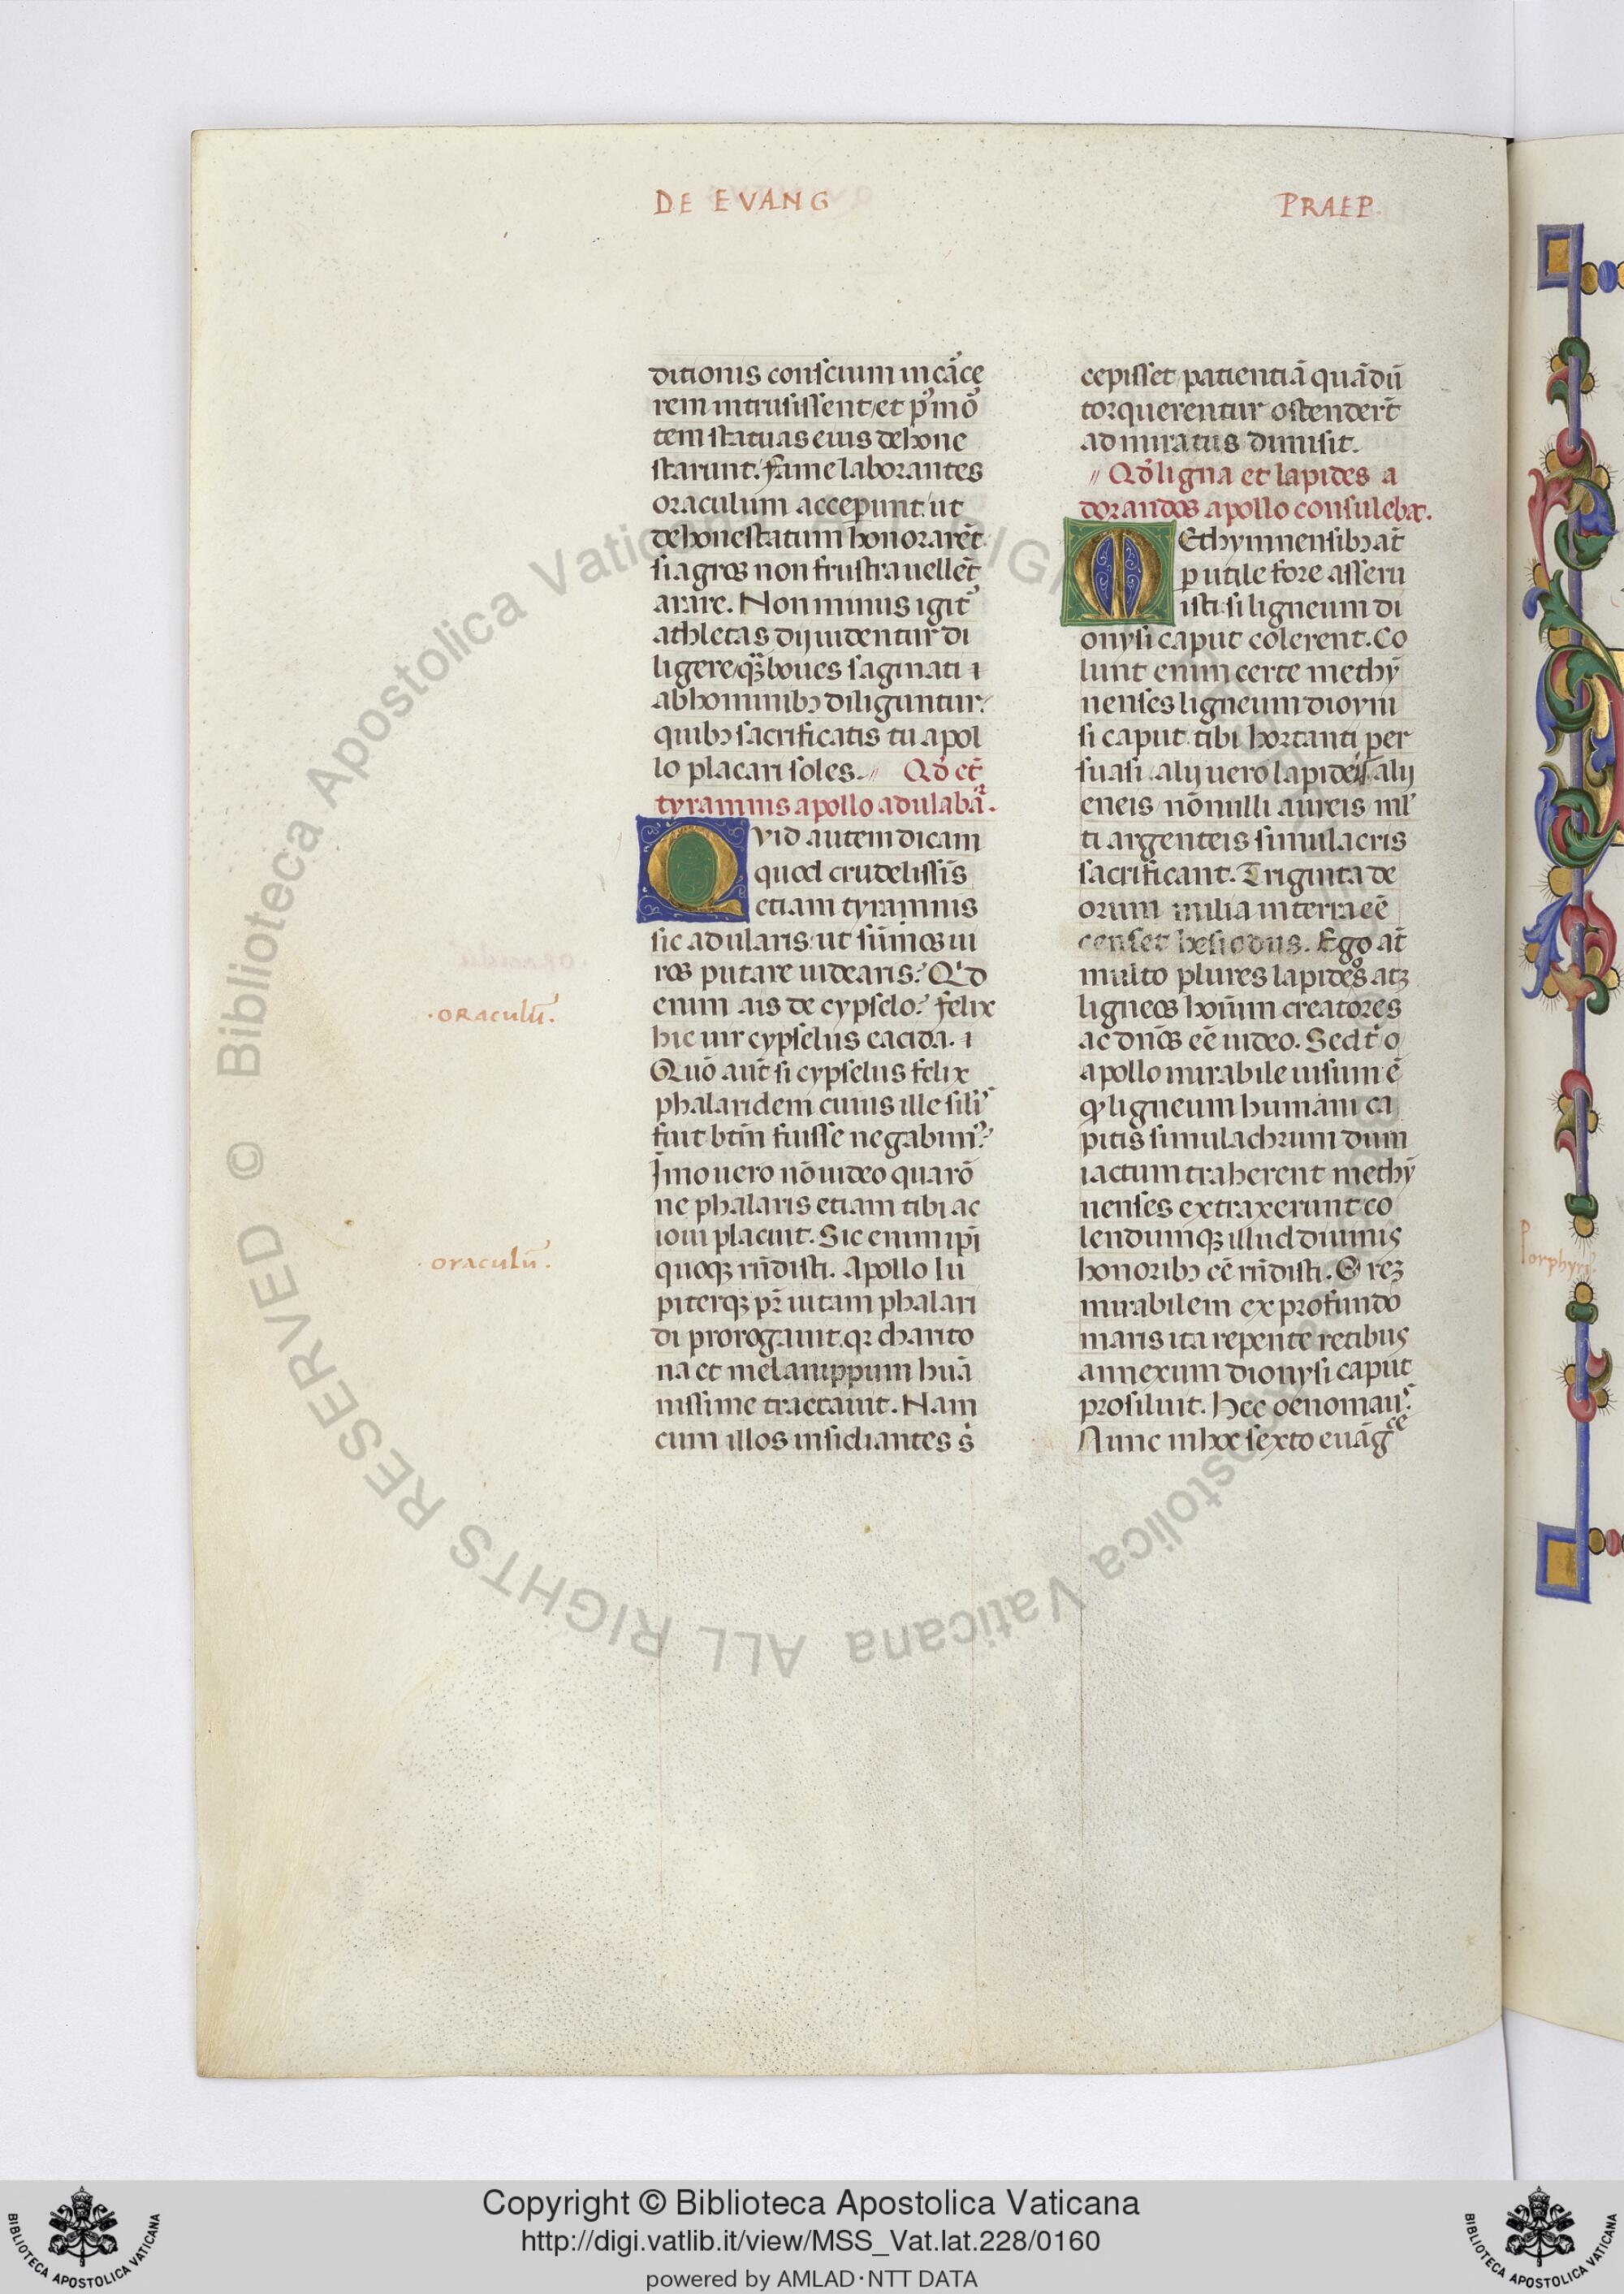 DE EVANG
PRAEP.
ditionis conscium in cãce
rem intrusissent et p̱ mõ
tem statuas eius dehone
starunt. fame laborantes
oraculum acceperunt ut
dehonestatum honorarẽt
si agros non frustra uellẽt
arare. Non minus igit᷒
athletas dij uidentur di
ligere quã boues saginati ⁊
ab hominibꝫ diliguntur.
quibꝫ sacrificatis tu apol
lo placari soles. // Qđ et̃
tyrannis apollo adulabãt᷒.
QVid autem dicam
quod crudelissĩs
etiam tyrannis
sic adularis: ut sũmos ui
ros putare uidearis? Qd
enim ais de cypselo? felix
hic uir cypselus eacida. ⁊
Quõ aũt si cypselus felix
phalaridem cuius ille silĩs
fuit btm̃ fuisse negabim᷒?
Imo uero nõ uideo qua rõ
ne phalaris etiam tibi ac
ioui placuit. Sic enim ip̃i
quoqꝫ rñdisti. Apollo Iu
piterqꝫ pr̃ uitam phalari
di prorogauit. qꝛ charito
na et melanippum humã
nissime tractauit. Nam
cum illos insidiantes s̉
·oraculũ.
·oraculũ.
cepisset patientiã quã dũ
torquerentur ostender̃t
admiratus dimisit.
// Qđ ligna et lapides a
dorandos apollo consulebat.
MEthymnensibꝫ at̃
p utile fore asseru
isti: si ligneum di
onysi caput colerent. Co
lunt enim certe methỹ
nenses ligneum dioyni
si caput tibi hortanti per
suasi. alij uero lapideis alij
eneis nõnulli aureis ml̃
ti argenteis simulacris
sacrificant. Triginta de
orum milia in terra eẽ
censet hesiodus. Ego at̃
multo plures lapideos atꝫ
ligneos hoĩum creatores
ac dños eẽ uideo. Sed t̉ o
apollo mirabile uisum ẽ
ꝙ ligneum humani ca
pitis simulachrum dum
iactum traherent methỹ
nenses extraxerunt co
lendumqꝫ illud diuinis
honoribꝫ eẽ rñdisti. O reꝫ
mirabilem ex profundo
maris ita repente retibus
annexum dionysi caput
prosiluit. Hec oenomaus.
Nunc in hoc sexto euãgce
Porphyri
Copyright © Biblioteca Apostolica Vaticana
http://digi.vatlib.it/view/MSS_Vat.lat.228/0160
powered by AMLAD·NTT DATA
BIBLIOTECA APOSTOLICA VATICANA
BIBLIOTECA APOSTOLICA VATICANA
© Biblioteca Apostolica Vaticana ALL RIGHTS RESERVED